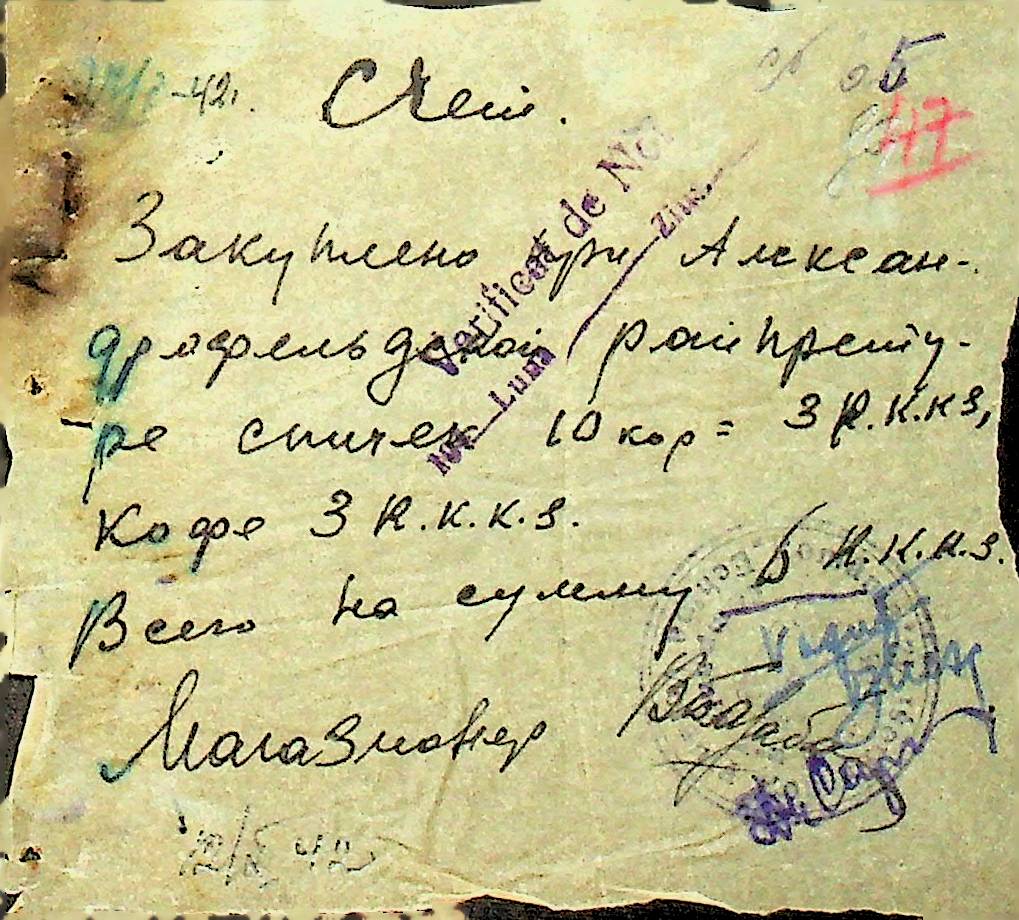 -42.
Счет.
5
47
Закуплено при Алексан-
дрофельдской райпрету-
ре спичек 10 кор = 3 R.К.К.З,
Кофе 3 R.К.К.З.
Всего на сумму 6 R.К.К.З.
Магазионер
Verificat de
No. Luna Ziua
42